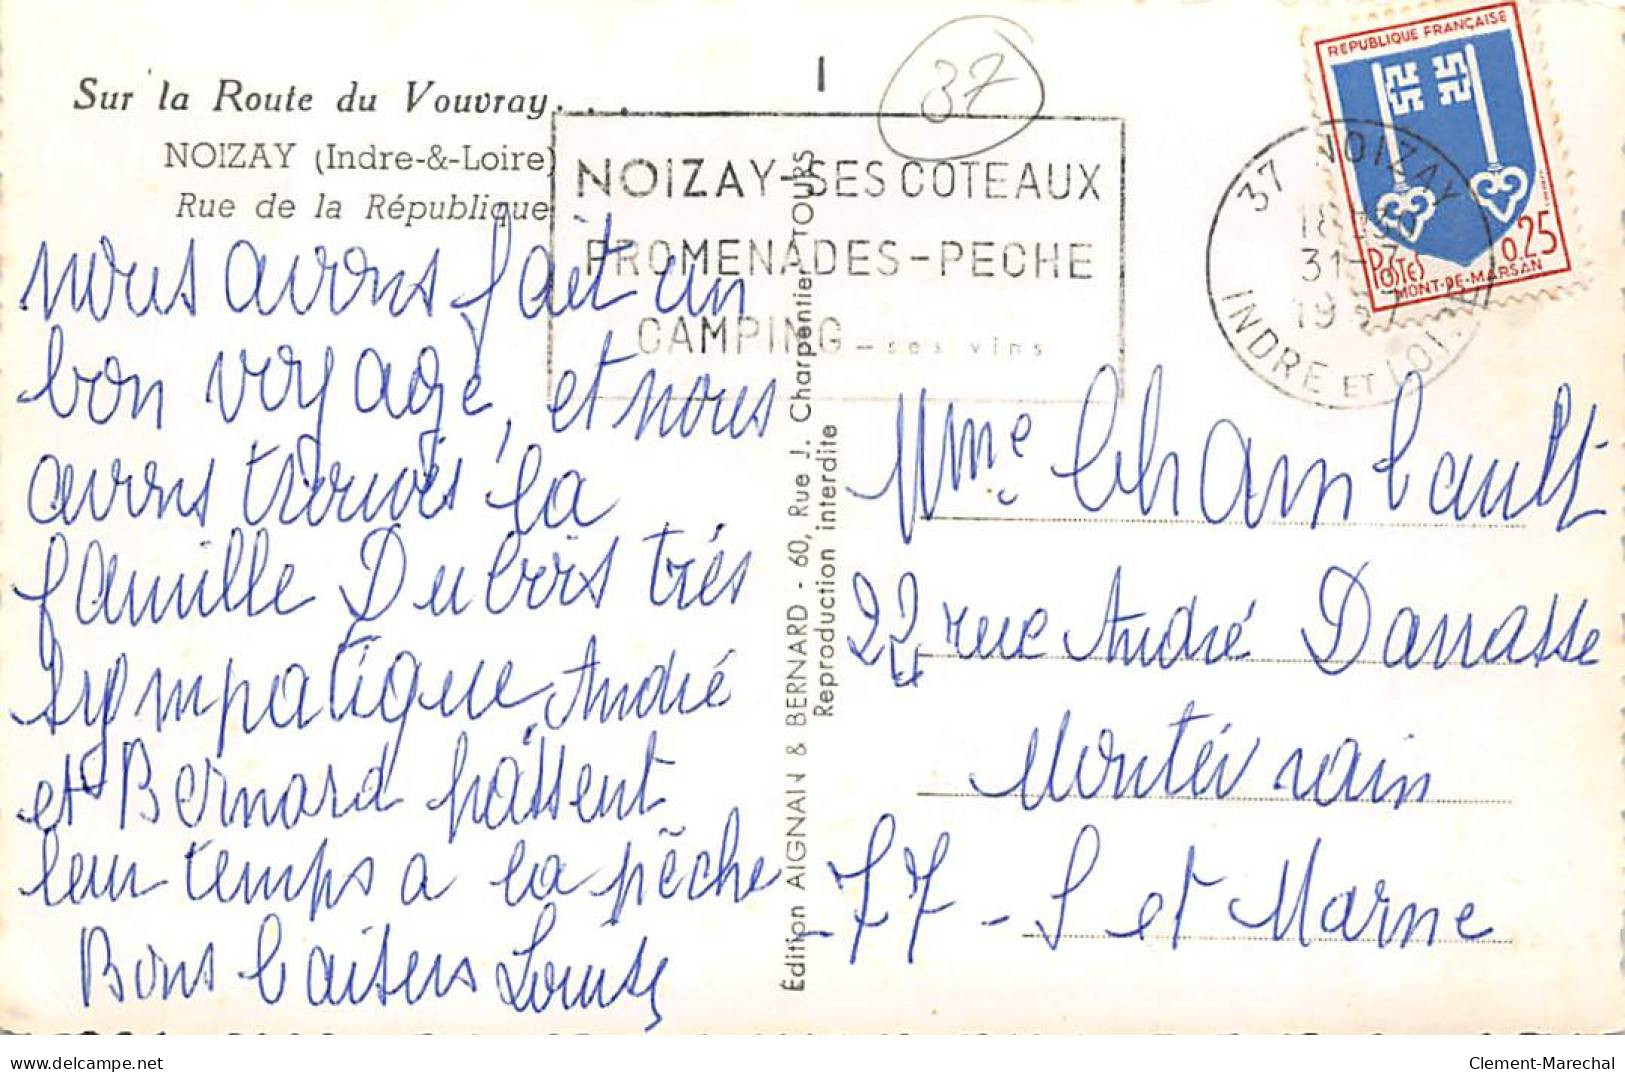 Sur la Route du Vouvray...
NOIZAY (Indre-&-Loire)
Rue de la République
37
NOIZAY-SES COTEAUX
PROMENADES-PECHE
CAMPING - ses vins
37 NOIZAY
18H30
31-7
19
INDRE ET LOIRE
REPUBLIQUE FRANÇAISE
0.25
POSTES
MONT-DE-MARSAN
nous avons fait un
bon voyage, et nous
avons trouvés la
famille Dubois très
sympatique André
et Bernard passent
leur temps a la pêche
Bons baisers Louise
Édition AIGNAN & BERNARD - 60, Rue J. Charpentier TOURS
Reproduction interdite
Mme Chambault
22 rue André Darrasse
Montévrain
77 - S et Marne
delcampe.net
Clement-Marechal